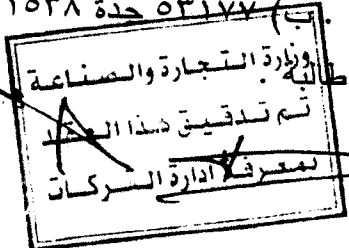 ب) ٥٣١٧٧ جدة ١٥٣٨
وزارة التجارة والصناعة
تم تدقيق هذا العقد
بمعرفة ادارة الشركات